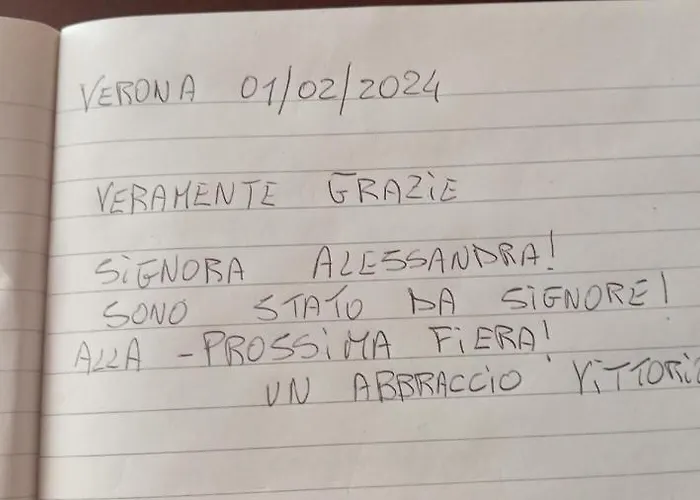 VERONA 01/02/2024
VERAMENTE GRAZIE
SIGNORA ALESSANDRA!
SONO STATO DA SIGNORE!
ALLA - PROSSIMA FIERA!
UN ABBRACCIO VITTORIO